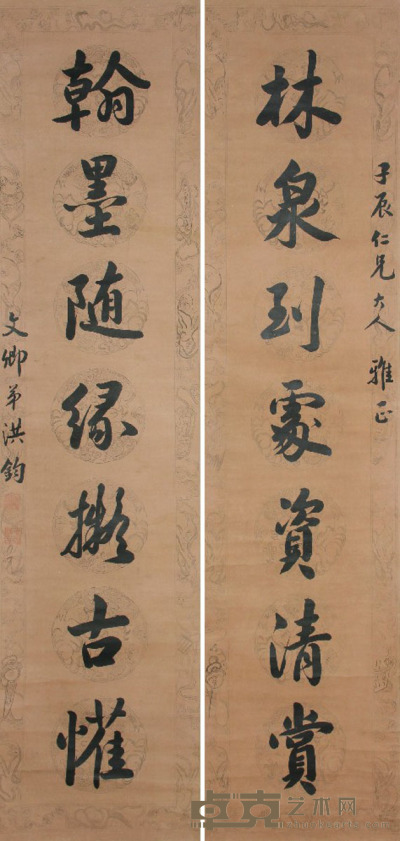 林泉到處資清賞
子辰仁兄大人 雅正
翰墨随缘擬古懽
文卿弟洪鈞
卓克艺术网